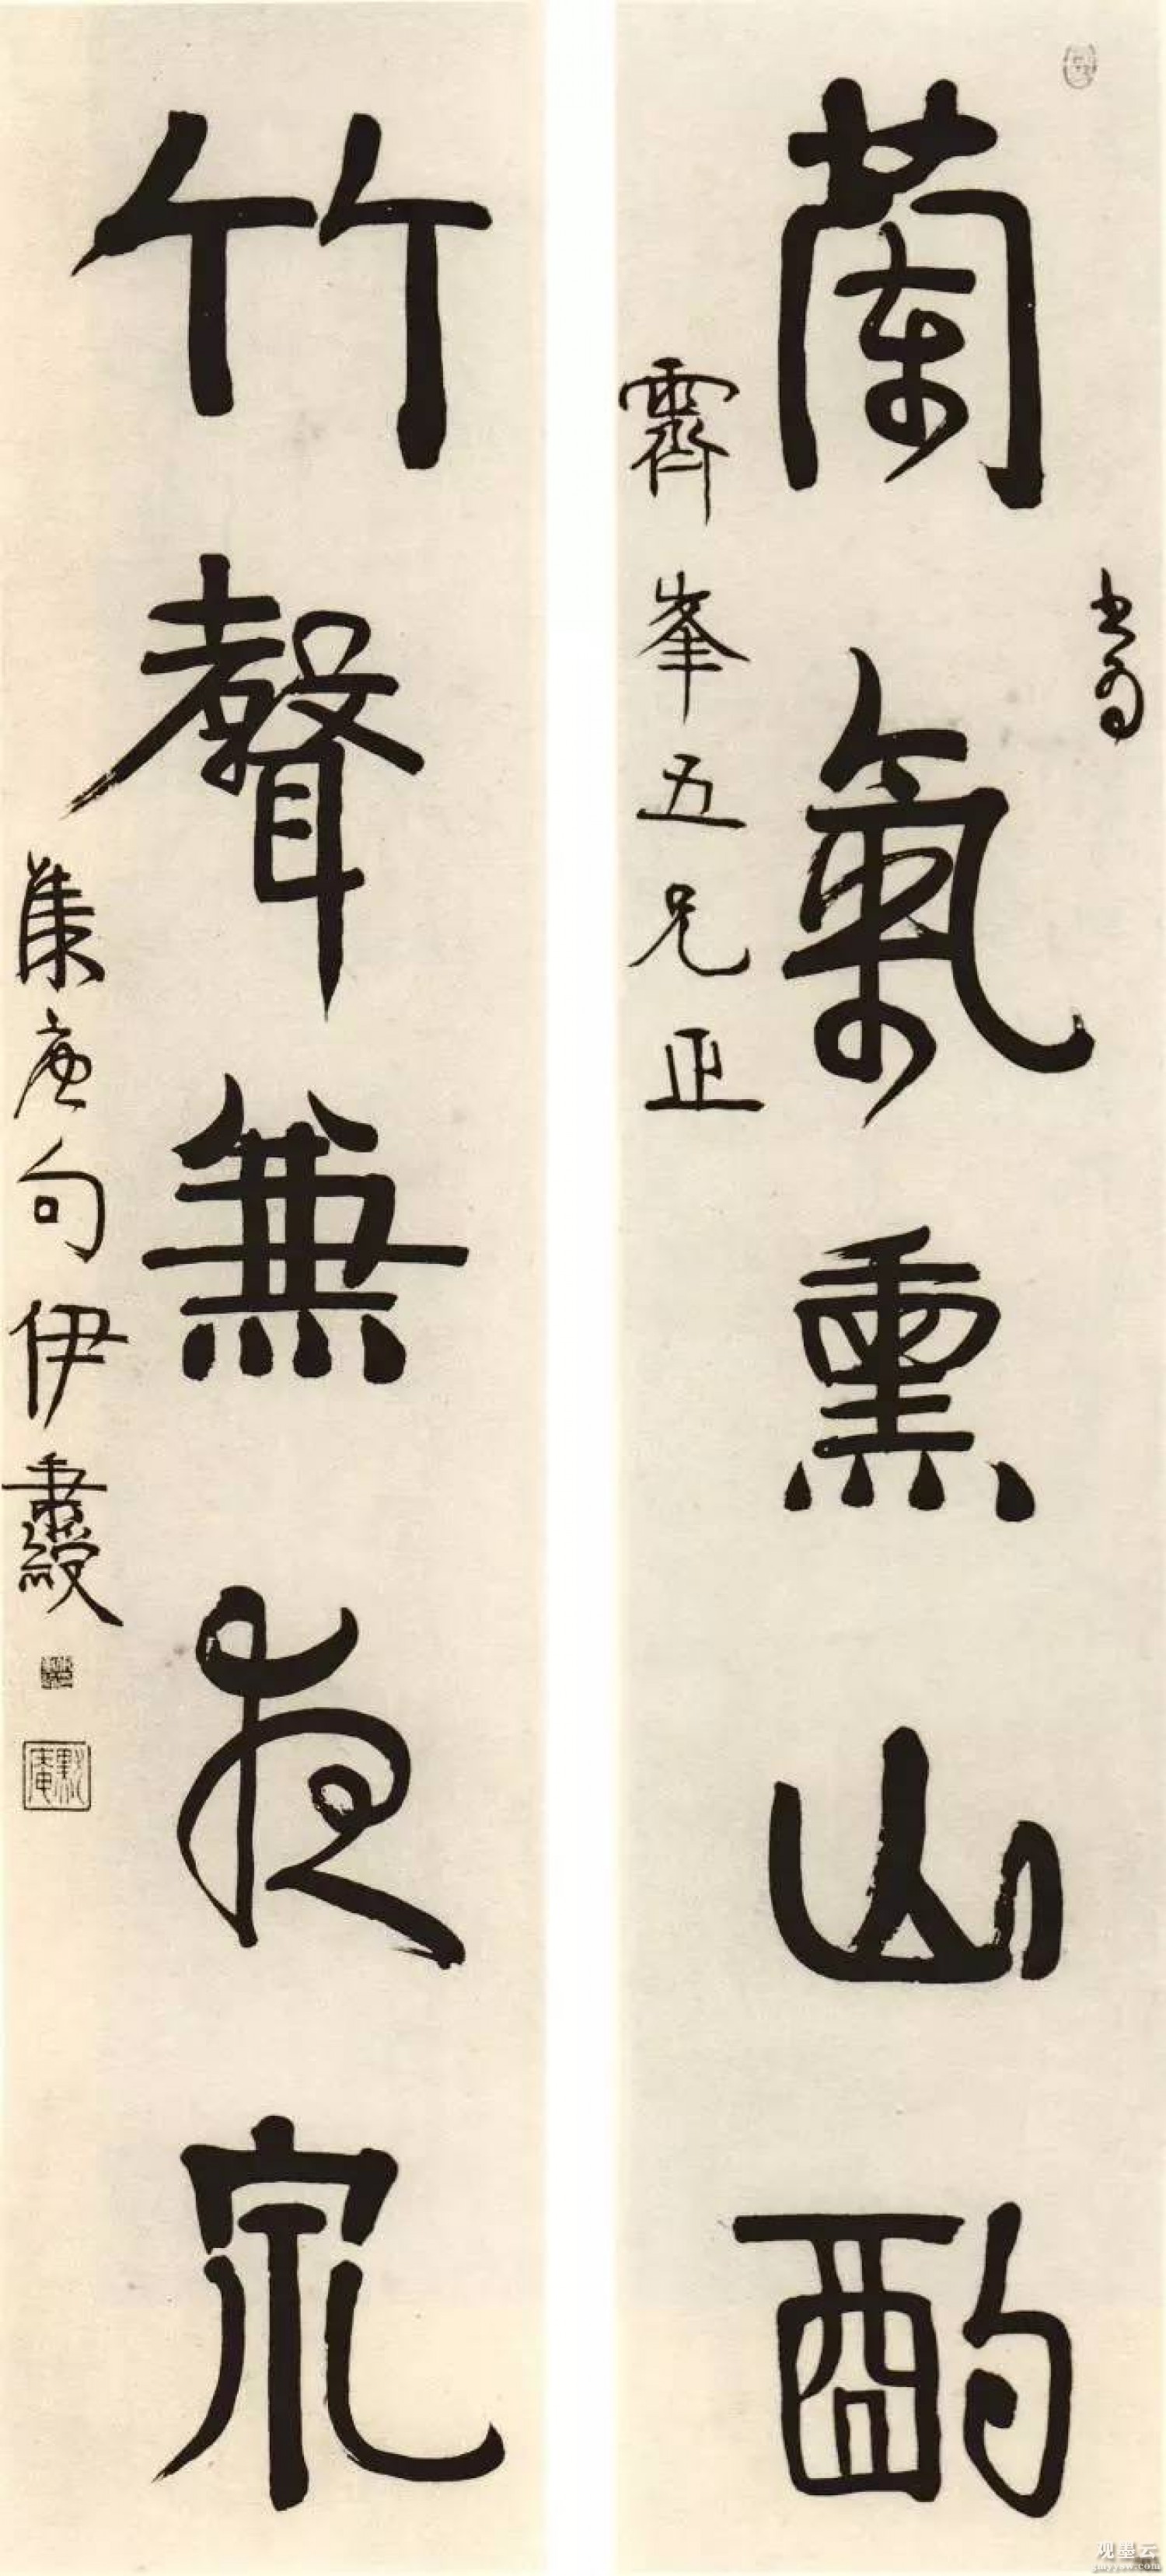 蘭氣熏山酌
書為
霽峯五兄正
竹聲兼夜泉
集唐句伊秉綬
默庵
观墨云